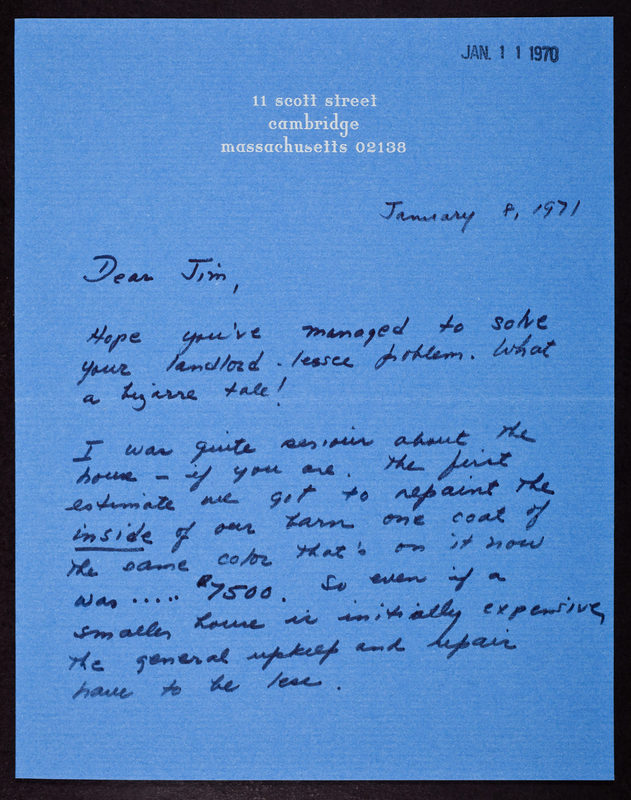 JAN. 1 1 1970
11 scott street
cambridge
massachusetts 02138
January 8, 1971
Dear Jim,
Hope you've managed to solve
your landlord - lessee problem. What
a bizarre tale!
I was quite serious about the
house – if you are. The first
estimate we got to repaint the
inside of our barn one coat of
the same color that's on it now
was ..... $7500. So even if a
smaller house is initially expensive,
the general upkeep and repair
have to be less.